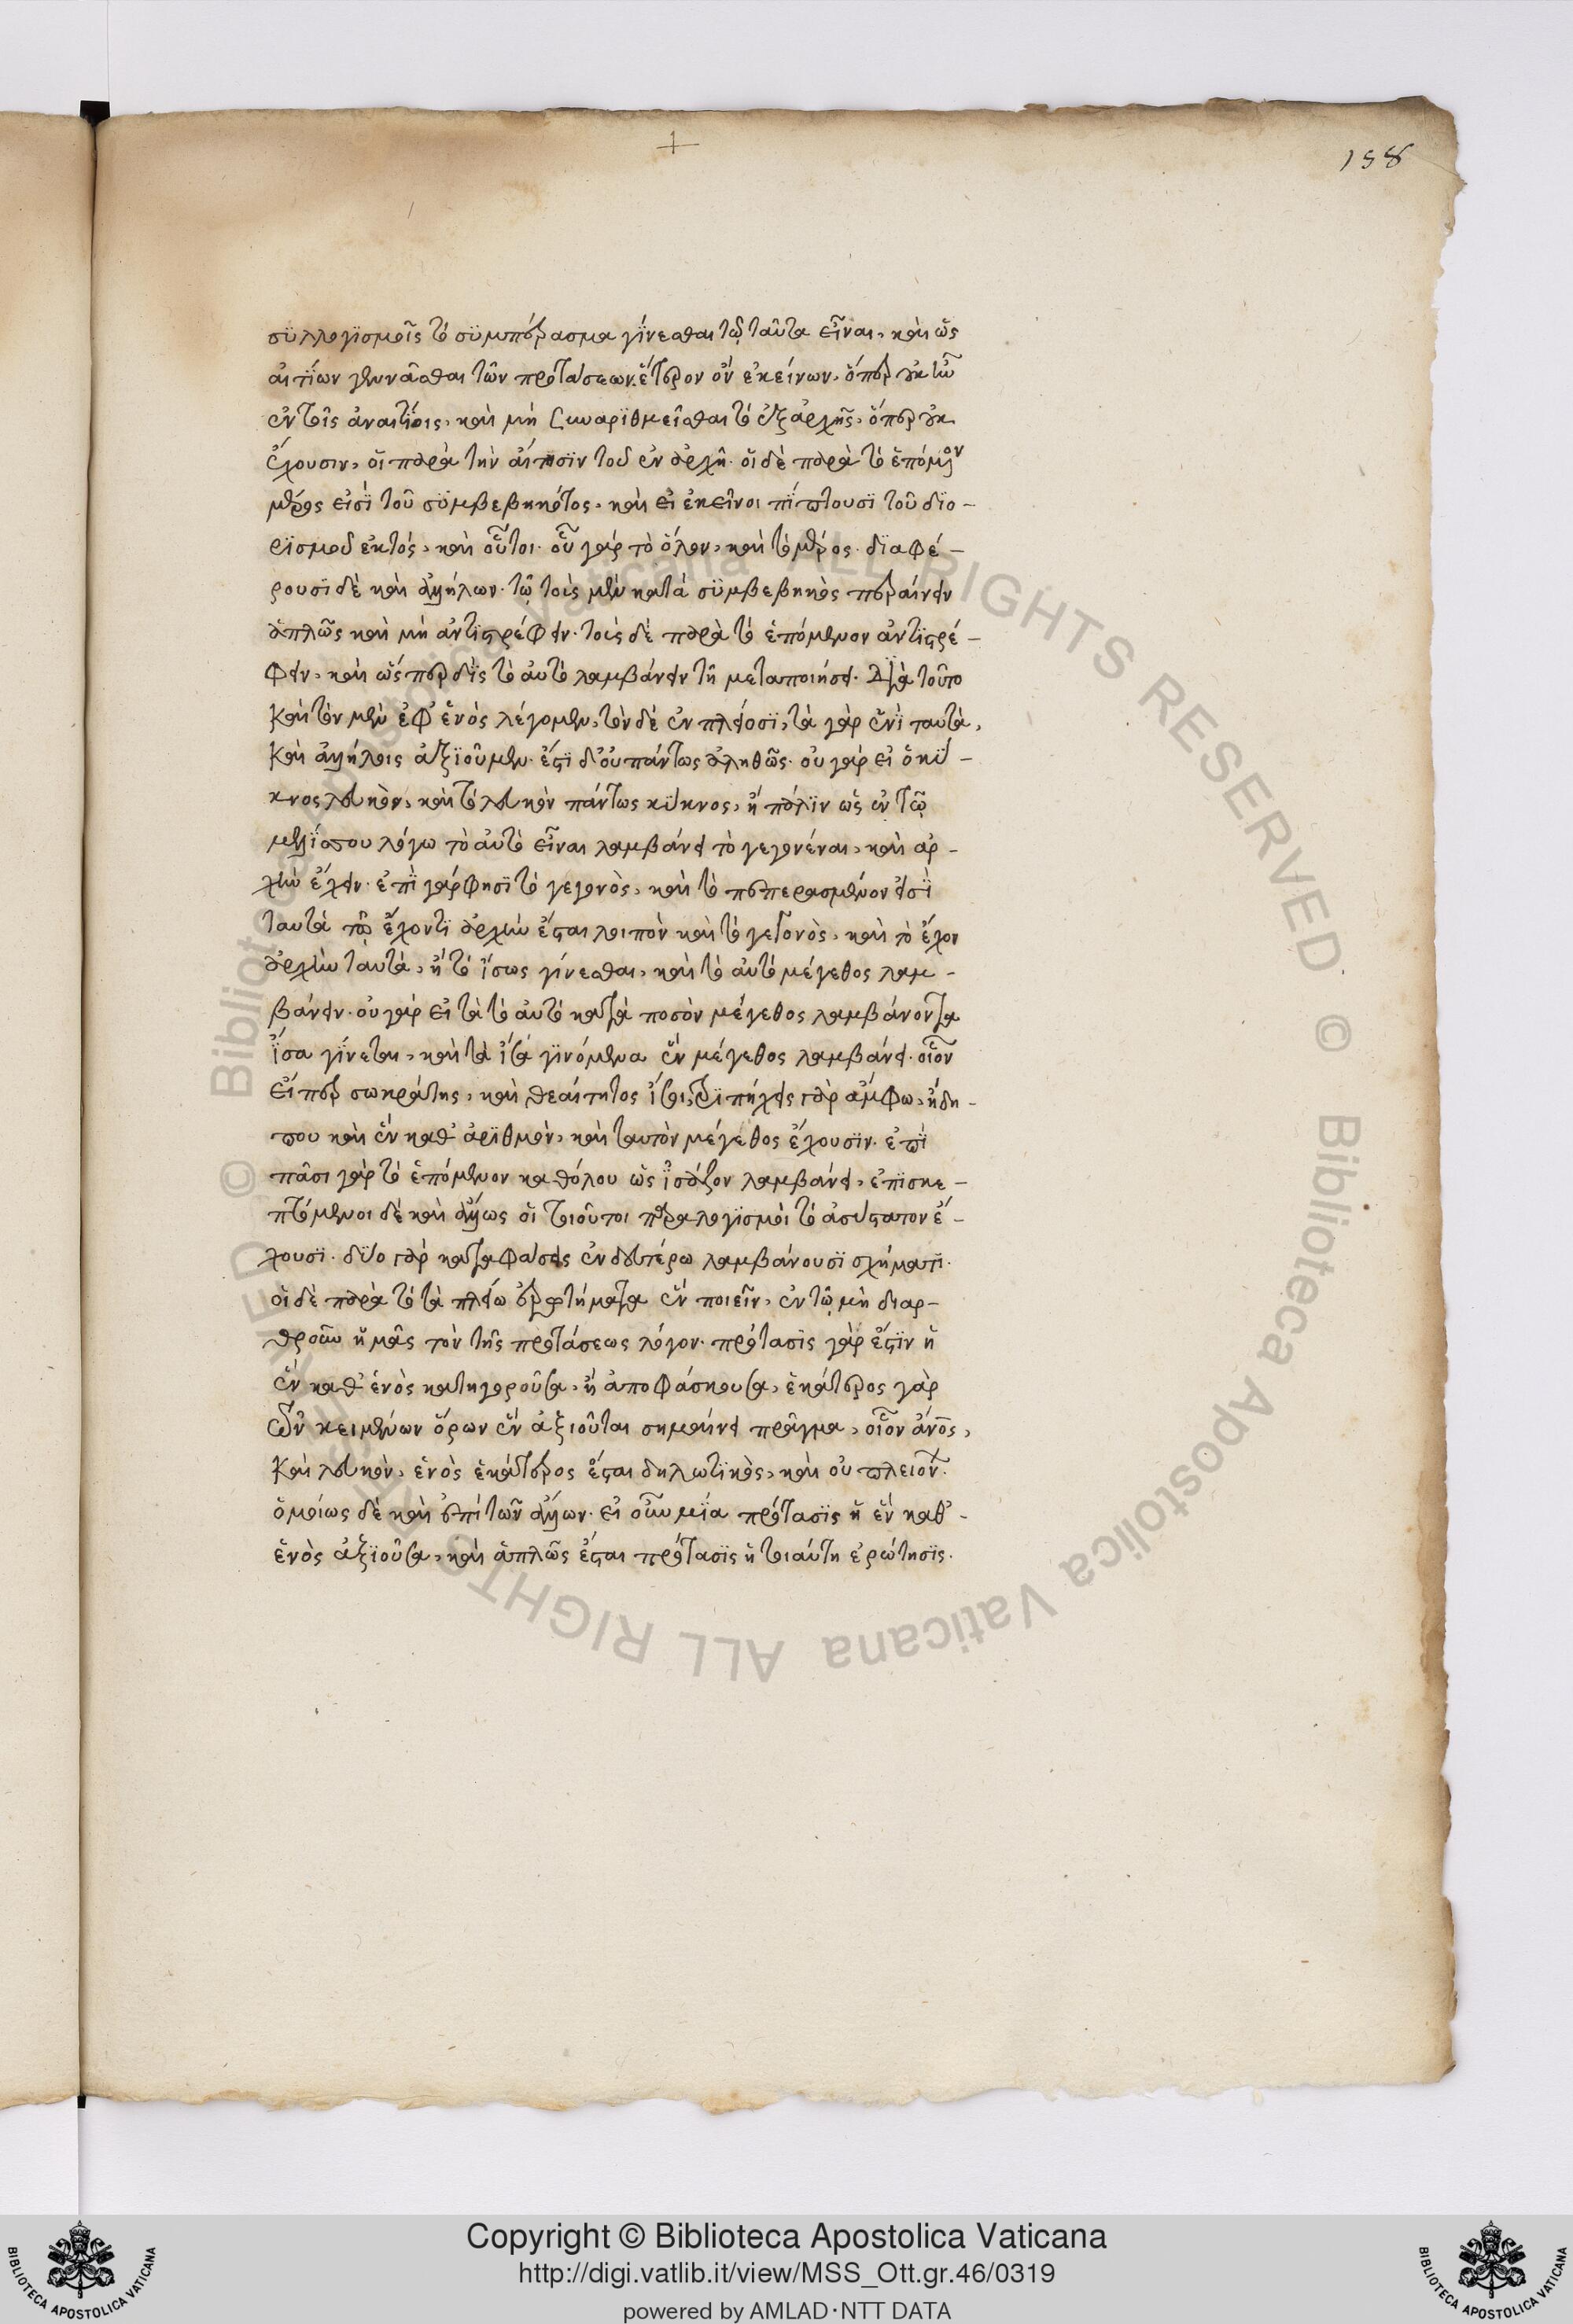 158
συλλογισμοῖς τὸ συμπέρασμα γίνεσθαι τῷ ταῦτα εἶναι, καὶ ὡς
αἰτίων γεννᾶσθαι τῶν προτάσεων. ἕτερον οὖν ἐκείνων, ὅπερ οὐκ ἦν
ἐν τοῖς ἀναιτίοις, καὶ μὴ συναριθμεῖσθαι τὸ ἐξ ἀρχῆς, ὅπερ οὐκ
ἔχουσιν, οἱ παρὰ τὴν αἴτησιν τοῦ ἐν ἀρχῇ. οἱ δὲ παρὰ τὸ ἑπόμενον
μέρος εἰσὶ τοῦ συμβεβηκότος, καὶ εἰ ἐκεῖνοι πίπτουσι τοῦ διο-
ρισμοῦ ἐκτός, καὶ οὗτοι. οὗ γὰρ τὸ ὅλον, καὶ τὸ μέρος. διαφέ-
ρουσι δὲ καὶ ἀλλήλων. τῷ τοῖς μὲν κατὰ συμβεβηκὸς περαίνειν
ἁπλῶς καὶ μὴ ἀντιστρέφειν. τοῖς δὲ παρὰ τὸ ἑπόμενον ἀντιστρέ-
φειν, καὶ ὥσπερ δὶς τὸ αὐτὸ λαμβάνειν τῇ μεταποιήσει. Διὰ τοῦτο
καὶ τὸν μὲν ἐφ' ἑνὸς λέγομεν, τὸν δὲ ἐν πλείοσι, τὰ γὰρ ἑνὶ ταὐτὰ,
καὶ ἀλλήλοις ἀξιοῦμεν. ἔστι δ' οὐ πάντως ἀληθῶς. οὐ γὰρ εἰ ὁ κύ-
κνος λευκὸν, καὶ τὸ λευκὸν πάντως κύκνος, ἢ πάλιν ὡς ἐν τῷ
μελίσσου λόγω τὸ αὐτὸ εἶναι λαμβάνει τὸ γεγονέναι, καὶ ἀρ-
χὴν ἔχειν. ἐπεὶ γάρ φησι τὸ γεγονὸς, καὶ τὸ πεπερασμένον εἰσὶ
ταὐτὰ τῷ ἔχοντι ἀρχὴν ἔσται λοιπὸν καὶ τὸ γεγονὸς, καὶ τὸ ἔχον
ἀρχὴν ταὐτὰ, ἢ τὸ ἴσως γίνεσθαι, καὶ τὸ αὐτὸ μέγεθος λαμ-
βάνειν. οὐ γὰρ εἰ τὰ τὸ αὐτὸ κατὰ ποσὸν μέγεθος λαμβάνοντα
ἴσα γίνεται, καὶ τὰ ἴσα γινόμενα ἓν μέγεθος λαμβάνει. οἷον
εἴπερ σωκράτης, καὶ θεαίτητος ἴσοι, τριπήχεις γὰρ ἄμφω, ἤδη-
που καὶ ἓν καθ' ἀριθμὸν, καὶ ταυτὸν μέγεθος ἔχουσιν. ἐπὶ
πᾶσι γὰρ τὸ ἑπόμενον καθόλου ὡς ἰσάζον λαμβάνει, ἐπισκε-
πτόμενοι δὲ καὶ ἄλλως οἱ τοιοῦτοι παραλογισμοὶ τὸ ἀσύστατον ἔ-
χουσι. δύο γὰρ καταφάσεις ἐν δευτέρω λαμβάνουσι σχήματι.
οἱ δὲ παρὰ τὸ τὰ πλείω ἐρωτήματα ἓν ποιεῖν, ἐν τῷ μὴ διαρ-
θροῦν ἡμᾶς τὸν τῆς προτάσεως λόγον. πρότασις γάρ ἐστιν ἡ
ἓν καθ' ἑνὸς κατηγοροῦσα, ἢ ἀποφάσκουσα, ἑκάτερος γὰρ
τῶν κειμένων ὅρων ἓν ἀξιοῦται σημαίνει πρᾶγμα, οἷον ἄνος,
καὶ λευκὸν, ἑνὸς ἑκάτερος ἔσται δηλωτικὸς, καὶ οὐ πλειον.
ὁμοίως δὲ καὶ ἐπὶ τῶν ἄλλων. εἰ οὖν μία πρότασις ἡ ἓν καθ'-
ἑνὸς ἀξιοῦσα, καὶ ἁπλῶς ἔσται πρότασις ἡ τοιαύτη ἐρώτησις.
Copyright © Biblioteca Apostolica Vaticana
http://digi.vatlib.it/view/MSS_Ott.gr.46/0319
powered by AMLAD·NTT DATA